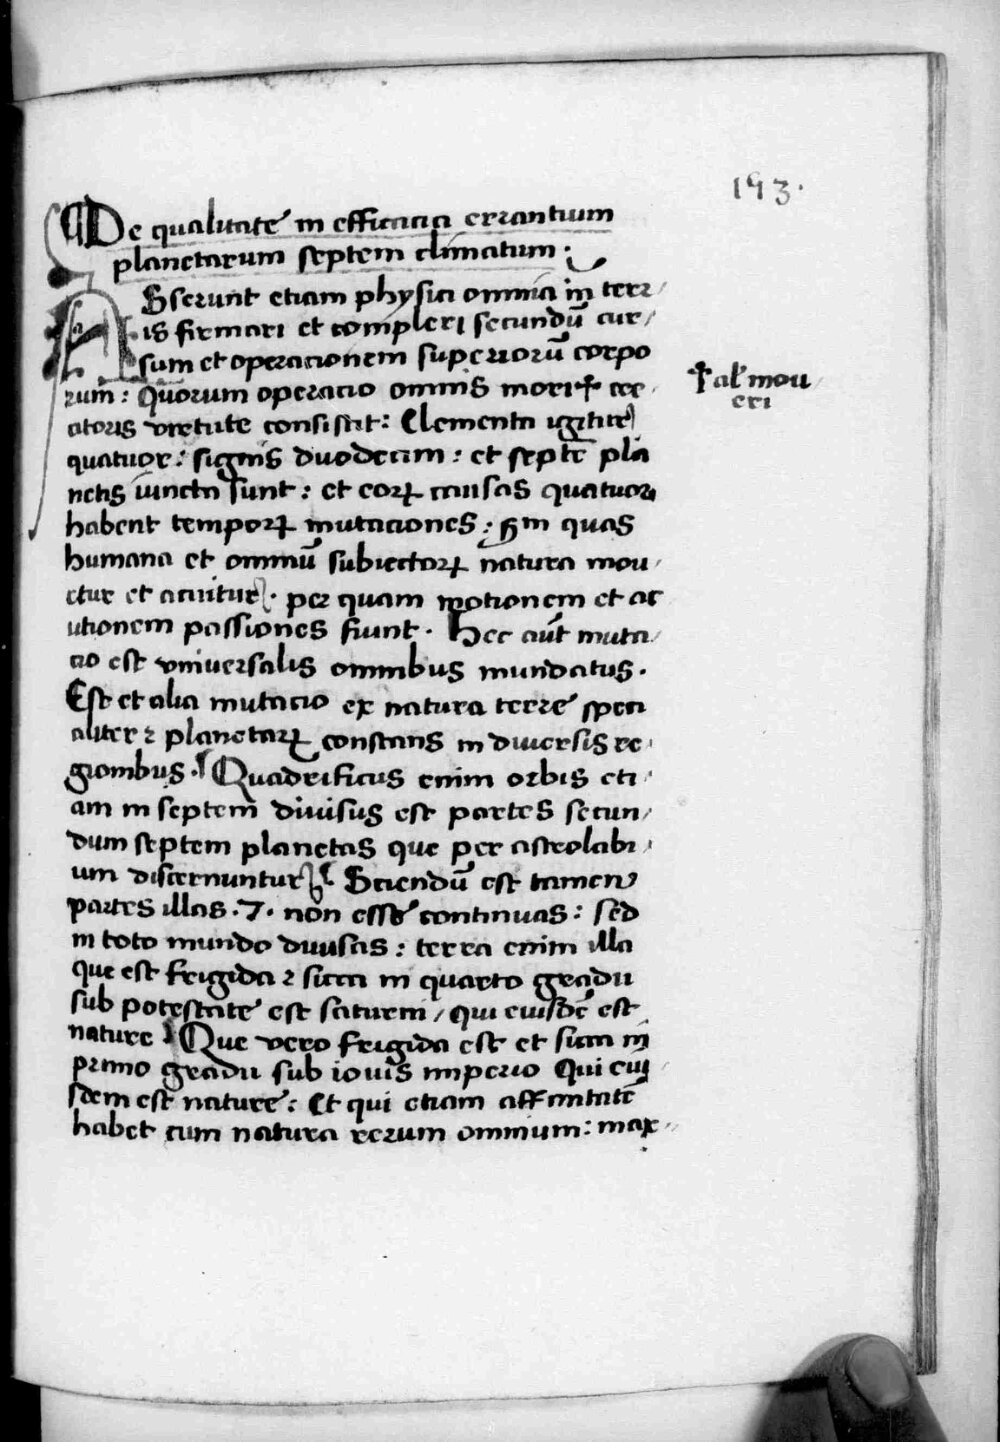 193.
¶ De qualitate in efficacia errantium
planetarum septem climatum :
Asserunt etiam physici omnia in terr/
is firmari et compleri secundū cur/
sum et operacionem superiorū corpo
rum : Quorum operacio omnis mori† cre/
atoris virtute consistit : Elementa igitur
quatuor : signis duodecim : et septē pla
netis iuncta sunt : et eorꝝ causas quatuor
habent temporꝝ mutaciones : scd̄m quas
humana et omniū subiectorꝝ natura mou/
etur et acuitur . per quam motionem et ac
utionem passiones fiunt . Hec aūt muta/
cio est vniuersalis omnibus mundatus .
Est et alia mutacio ex natura terre speci
aliter ⁊ planetarꝝ constans in diuersis re/
gionibus . ¶ Quadrificus enim orbis eti/
am in septem diuisus est partes secun/
dum septem planetas que per astrolabi/
um discernuntur ¶ Sciendū est tamen
partes illas .7. non esse continuas : sed
in toto mundo diuisas : terra enim illa
que est frigida ⁊ sicca in quarto gradu
sub potestate est saturni / qui eiusdē est
nature ¶ Que vero frigida est et sicca in
primo gradu sub iouis imperio Qui eiu
sdem est nature : Et qui etiam affinitatē
habet cum natura rerum omnium : max/
† al' mou/
eri